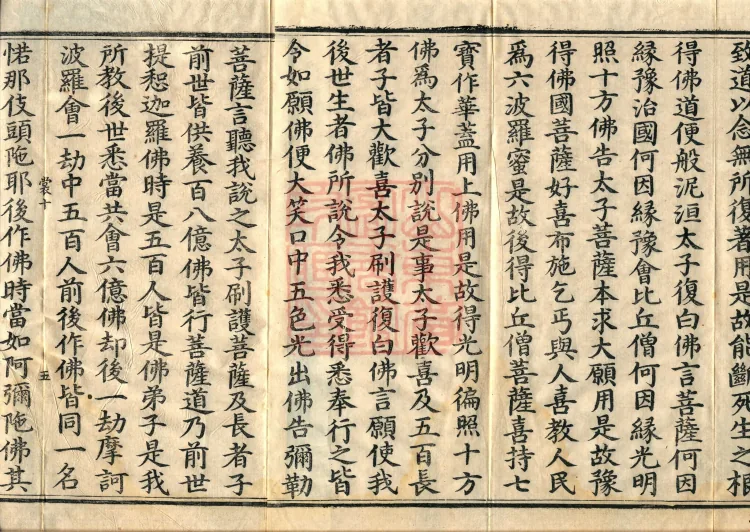 致道以念無所復著用是故能斷死生之根
得佛道便般泥洹太子復白佛言菩薩何因
緣豫治國何因緣豫會比丘僧何因緣光明
照十方佛告太子菩薩本求大願用是故豫
得佛國菩薩好喜布施乞丐與人喜教人民
爲六波羅蜜是故後得比丘僧菩薩喜持七
寶作華蓋用上佛用是故得光明徧照十方
佛爲太子分別說是事太子歡喜及五百長
者子皆大歡喜太子刷護復白佛言願使我
後世生者佛所說令我悉受得悉奉行之皆
令如願佛便大笑口中五色光出佛告彌勒
菩薩言聽我說之太子刷護菩薩及長者子
前世皆供養百八億佛皆行菩薩道乃前世
提惒迦羅佛時是五百人皆是佛弟子是我
所教後世悉當共會六億佛却後一劫摩訶
波羅會一劫中五百人前後作佛皆同一名
裳十 五
惒那伎頭陁耶後作佛時當如阿彌陁佛其